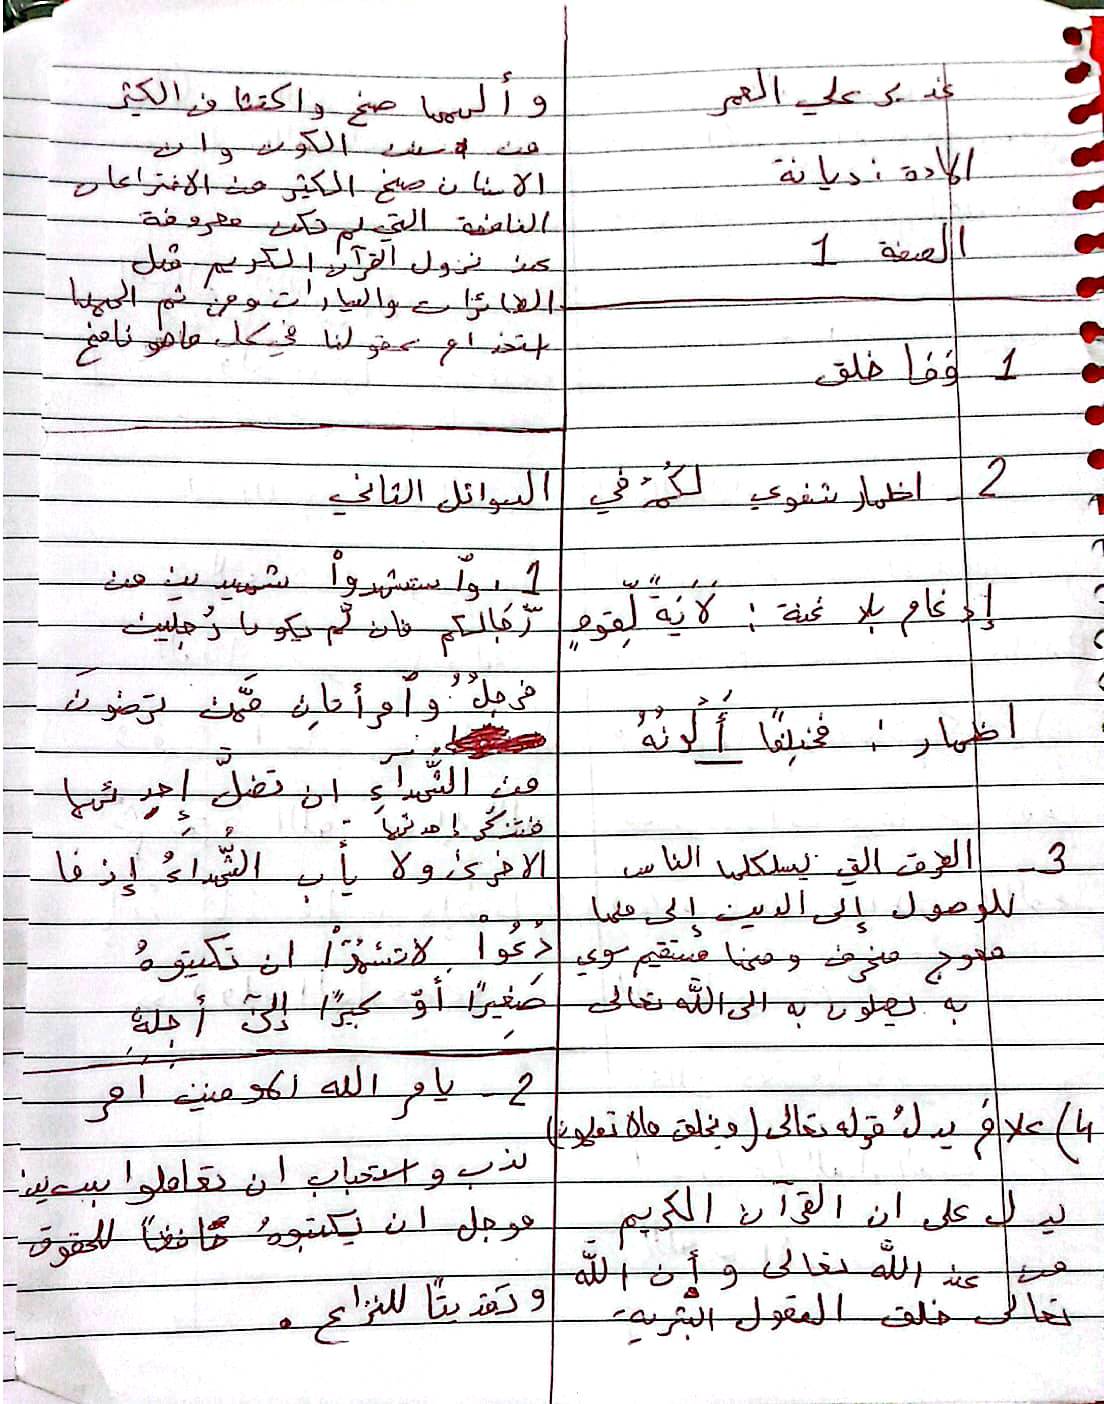 علي العمر
المادة : ديانة
الصفة 1
1 وفا خلق
2 - اظهار شفوي لكُمْ في
إدغام بلا غنة : لَآيَةً لِّقومٍ
اظهار : مختلِفًا أَلْوَٰنُهُ
3 - الطرق التي يسلكها الناس
للوصول إلى الدين إلى منها
معوج منحرف ومنها مستقيم سوي
به يصلون به الى الله تعالى
4) علام يدلُ قوله تعالى (ويخلق مالا تعلمون)
يدل على ان القرآن الكريم
من عند الله تعالى وأن الله
تعالى خلق العقول البشرية
وألهمها صنع واكتشاف الكثير
من الكون وان
الانسان صنع الكثير من الاختراعات
النافعة التي لم تكن معروفة
عند نزول القرآن الكريم مثل
الطائرات والسيارات ومن ثم الهمها
استخدام عقولنا في كل ماهو نافع
السوائل الثاني
1 . وٱستشهدواْ شهيدين من
رِّجَالكم فان لَّم يكونا رَجلين
فرجلٌ وٱمرأتانِ ممَّن ترضونَ
من الشُّهداءِ ان تضلَّ إحدىهما
فتذكر إحدىهما
الاخرىٰ ولا يأب الشُّهداءُ إذ ما
دُعُواْ لا تسْـَٔمُوٓاْ ان تكتبوهُ
صَغِيرًا أَوْ كبيرًا إلىٰٓ أجلهِ
2 - يامر الله المومنين امر
ندب واستحباب ان تعاملوا بدين
موجل ان يكتبوهُ حافظاً للحقوق
وتفديتًا للنزاع .